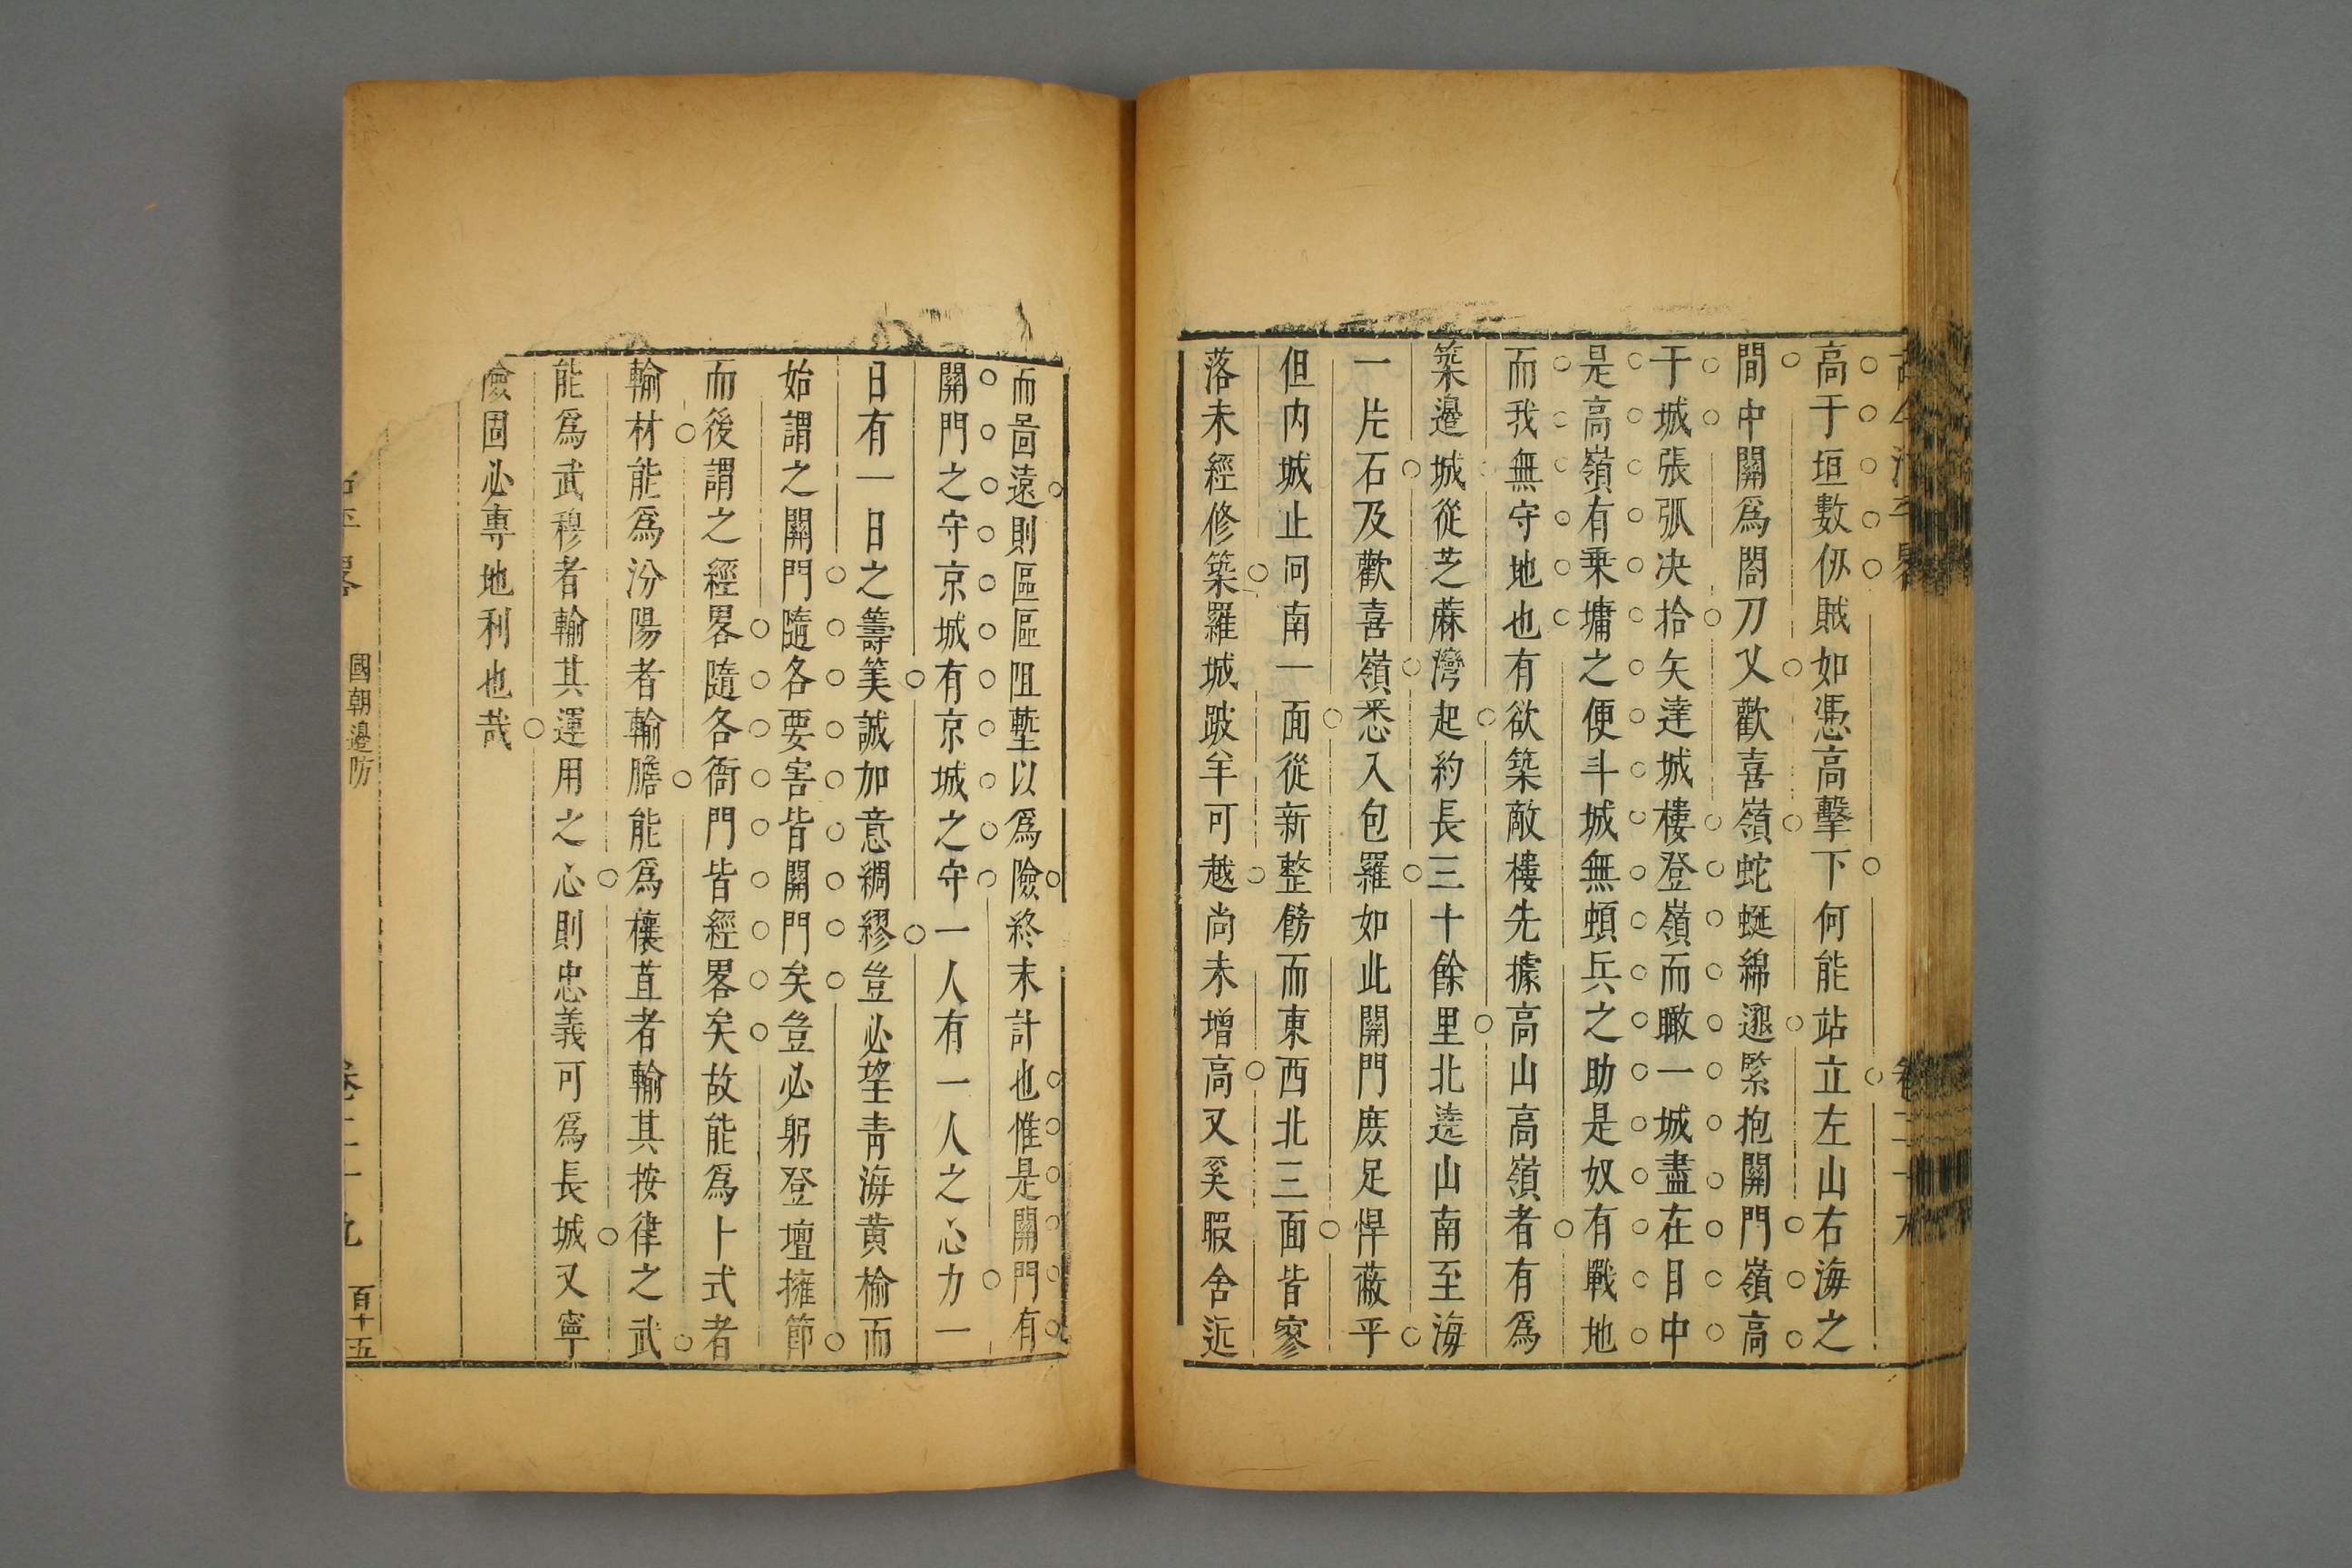 高于垣數仭賊如憑高擊下何能站立左山右海之
間中闢爲閤刀又歡喜嶺蛇蜒綿邈緊抱關門嶺高
于城張弧决拾矢達城樓登嶺而瞰一城盡在目中
是高嶺有乗墉之便斗城無蝢兵之助是奴有戰地
而我無守地也有欲築敵樓先據高山高嶺者有爲
築邊城從芝蔴灣起約長三十餘里北遶山南至海
一片石及歡喜嶺悉入包羅如此關門庻足悍蔽平
但内城止向南一面從新整飭而東西北三面皆寥
落未經修築羅城跛羊可越尚未增高又奚暇舍近
而啚遠則區區阻塹以爲險終末計也惟是關門有
關門之守京城有京城之守一人有一人之心力一
日有一日之籌筭誠加意綢繆豈必望青海黄榆而
始謂之關門隨各要害皆關門矣豈必躬登壇擁節
而後謂之經畧隨各衙門皆經畧矣故能爲卜式者
輸材能爲汾陽者輸膽能爲穰苴者輸其按律之武
能爲武穆者輸其運用之心則忠義可爲長城又寧
險固必專地利也哉
國朝邉防
百十五